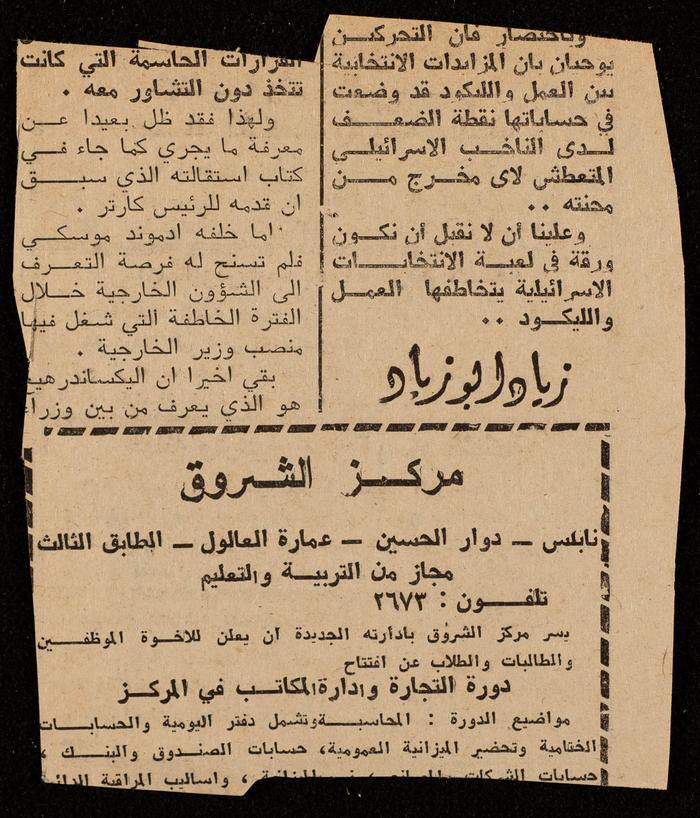 وباختصار فان التحركين
يوحيان بان المزايدات الانتخابية
بين العمل والليكود قد وضعت
في حساباتها نقطة الضعف
لدى الناخب الاسرائيلي
المتعطش لاى مخرج من
محنته ..
وعلينا أن لا نقبل أن نكون
ورقة في لعبة الانتخابات
الاسرائيلية يتخاطفها العمل
والليكود ..
زياد ابو زياد
القرارات الحاسمة التي كانت
تتخذ دون التشاور معه .
ولهذا فقد ظل بعيدا عن
معرفة ما يجري كما جاء في
كتاب استقالته الذي سبق
ان قدمه للرئيس كارتر .
اما خلفه ادموند موسكي
فلم تسنح له فرصة التعرف
الى الشؤون الخارجية خلال
الفترة الخاطفة التي شغل فيها
منصب وزير الخارجية .
بقي اخيرا ان اليكساندر هيغ
هو الذي يعرف من بين وزراء
مركز الشروق
نابلس – دوار الحسين – عمارة العالول – الطابق الثالث
مجاز من التربية والتعليم
تلفون : ٢٦٧٣
يسر مركز الشروق بادارته الجديدة ان يعلن للاخوة الموظفين
والطالبات والطلاب عن افتتاح
دورة التجارة وادارة المكاتب في المركز
مواضيع الدورة : المحاسبة وتشمل دفتر اليومية والحسابات
الختامية وتحضير الميزانية العمومية، حسابات الصندوق والبنك ،
حسابات الشركات ، واساليب المراقبة